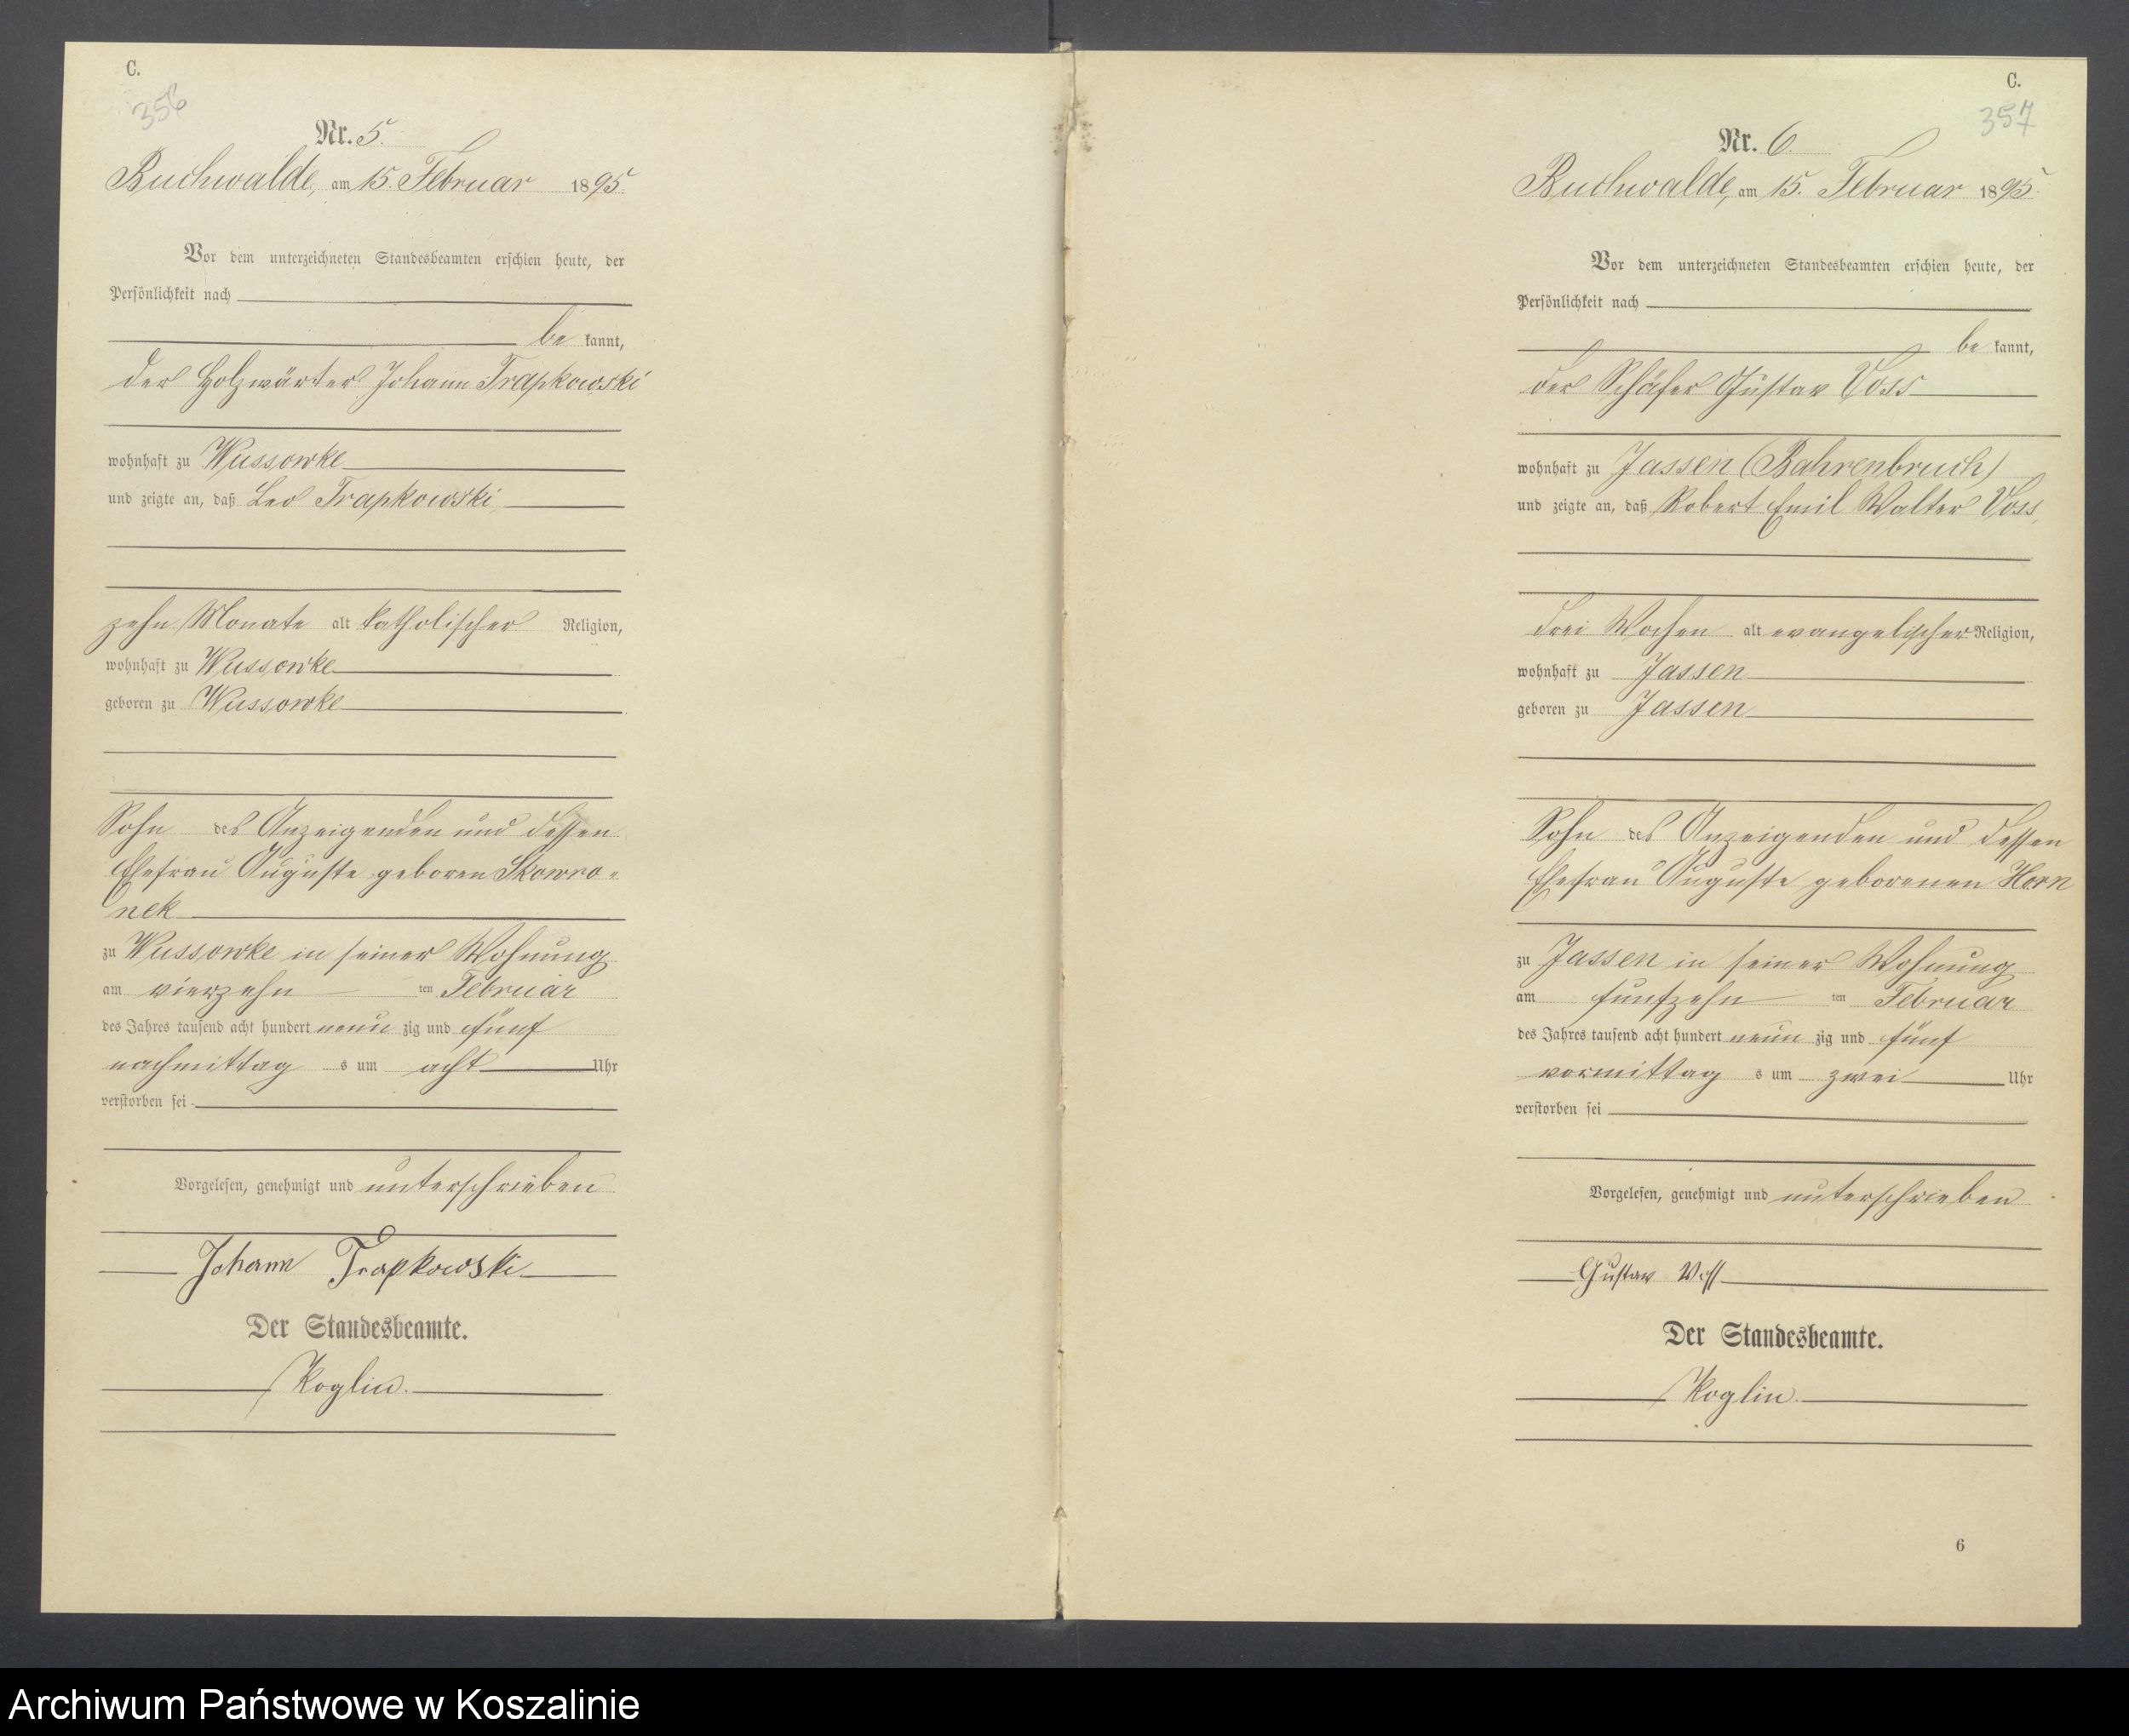 C.
356
Nr. 5.
Buchwalde, am 15. Februar 1895.
Vor dem unterzeichneten Standesbeamten erschien heute, der
Persönlichkeit nach
be kannt,
der Holzwärter Johann Trapkowski
wohnhaft zu Wussowke
und zeigte an, daß Leo Trapkowski,
zehn Monate alt katholischer Religion,
wohnhaft zu Wussowke
geboren zu Wussowke
Sohn des Anzeigenden und dessen
Ehefrau Auguste geboren Skowro-
nek
zu Wussowke in seiner Wohnung
am vierzehn ten Februar
des Jahres tausend acht hundert neun zig und fünf
nachmittag s um acht Uhr
verstorben sei.
Vorgelesen, genehmigt und unterschrieben
Johann Trapkowski
Der Standesbeamte.
Koglin.
C.
357
Nr. 6.
Buchwalde, am 15. Februar 1895.
Vor dem unterzeichneten Standesbeamten erschien heute, der
Persönlichkeit nach
be kannt,
der Schäfer Gustav Voss
wohnhaft zu Jassen (Bahrenbruch)
und zeigte an, daß Robert Emil Walter Voss,
drei Wochen alt evangelischer Religion,
wohnhaft zu Jassen
geboren zu Jassen
Sohn des Anzeigenden und dessen
Ehefrau Auguste geborenen Horn
zu Jassen in seiner Wohnung
am funfzehn ten Februar
des Jahres tausend acht hundert neun zig und fünf
vormittag s um zwei Uhr
verstorben sei
Vorgelesen, genehmigt und unterschrieben
Gustav Voss
Der Standesbeamte.
Koglin.
6
Archiwum Państwowe w Koszalinie